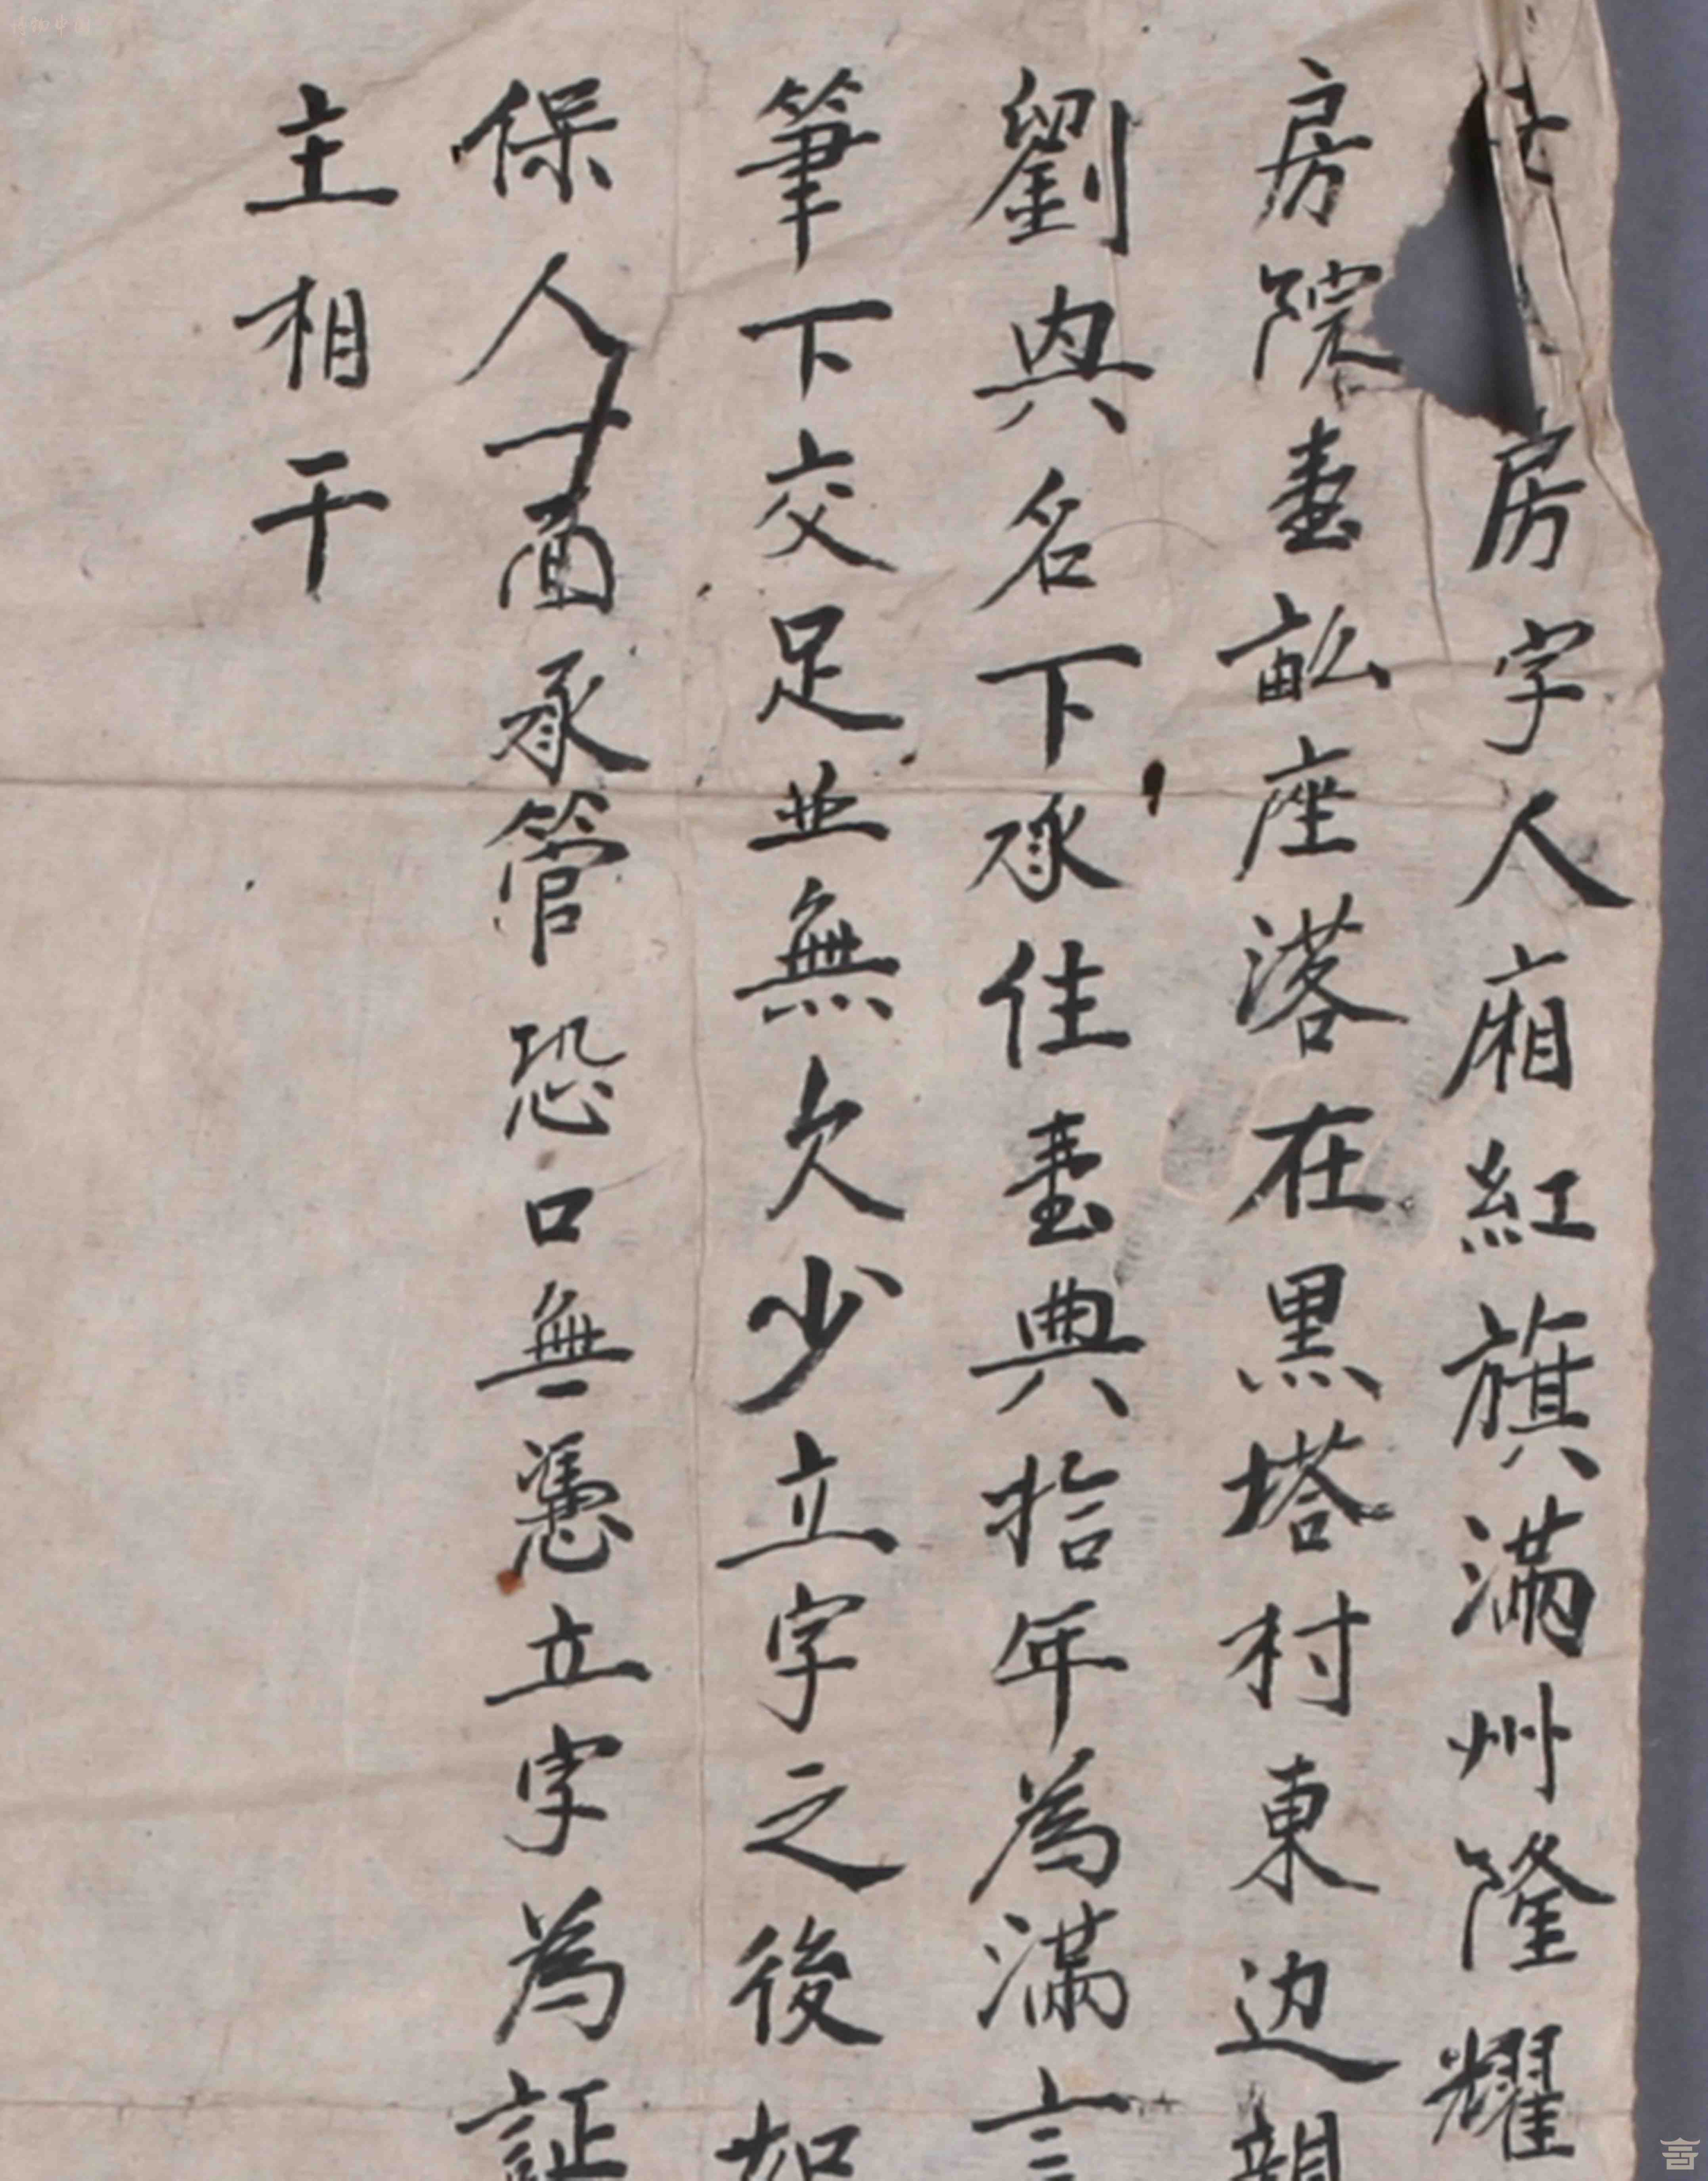 房字人廂紅旗滿州隆耀
房院壹畝座落在黑塔村東边親
劉興名下承住壹典拾年為滿言
筆下交足並無欠少立字之後如
保人一面承管恐口無憑立字為証
主相干